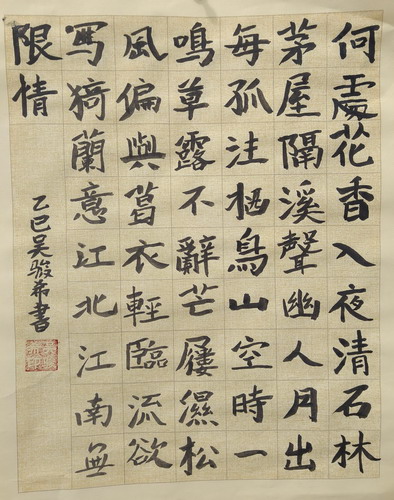 何處花香入夜清石林
茅屋隔溪聲幽人月出
每孤注栖鳥山空時一
鳴草露不辭芒屨濕松
風偏與葛衣輕臨流欲
寫猗蘭意江北江南無
限情
乙巳吴骏希書